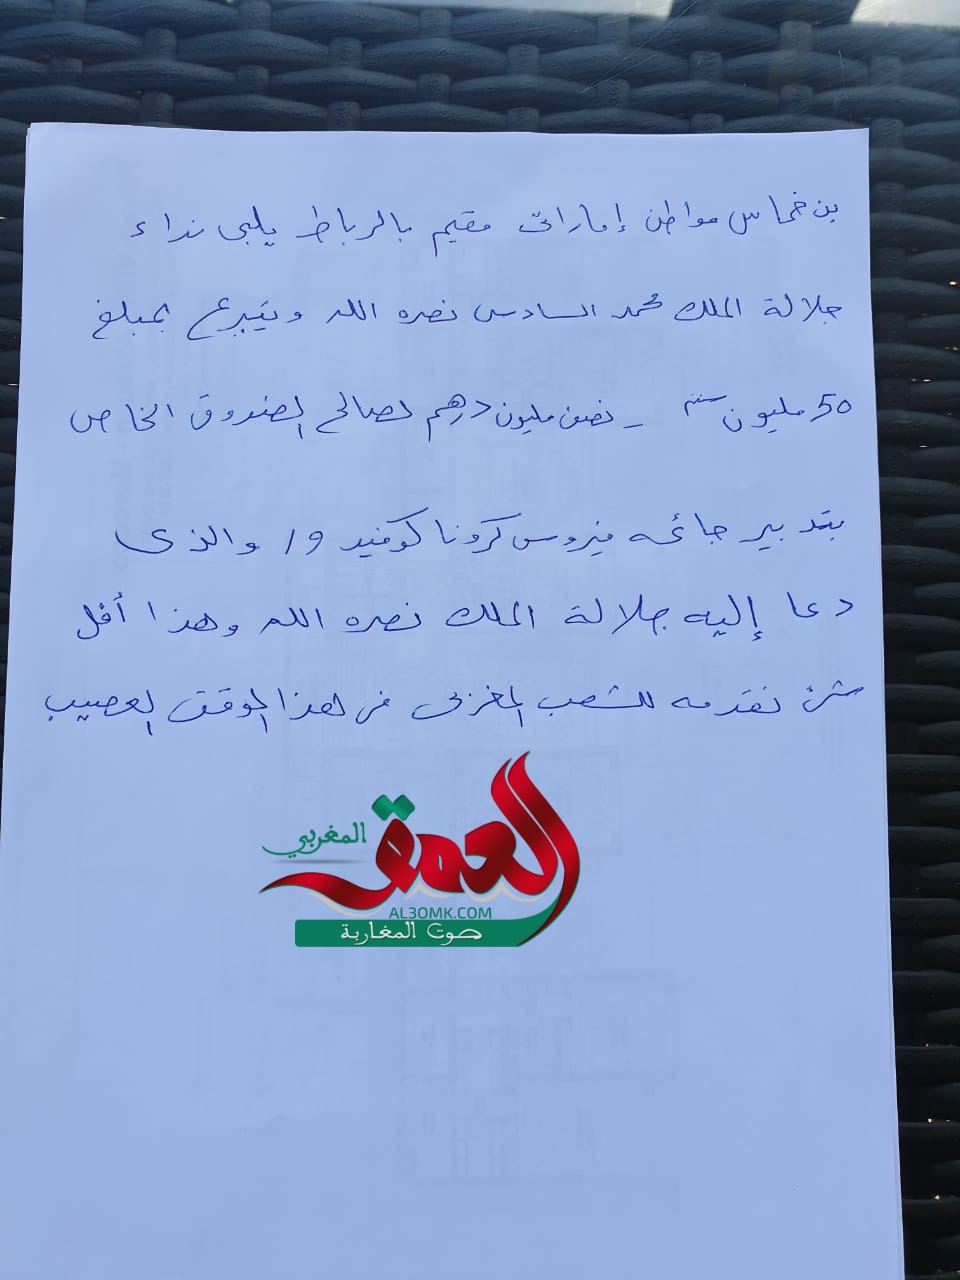 بن خماس مواطن إماراتى مقيم بالرباط يلبى نداء
جلالة الملك محمد السادس نصره الله ويتبرع بمبلغ
50 مليون سنتيم _ نصف مليون درهم لصالح الصندوق الخاص
بتدبير جائحه فيروس كرونا كوفيد 19 والذى
دعا إليه جلالة الملك نصره الله وهذا أقل
شئ نقدمه للشعب المغربى فى هذا الموقف العصيب
العمق
المغربي
AL3OMK.COM
صوت المغاربة